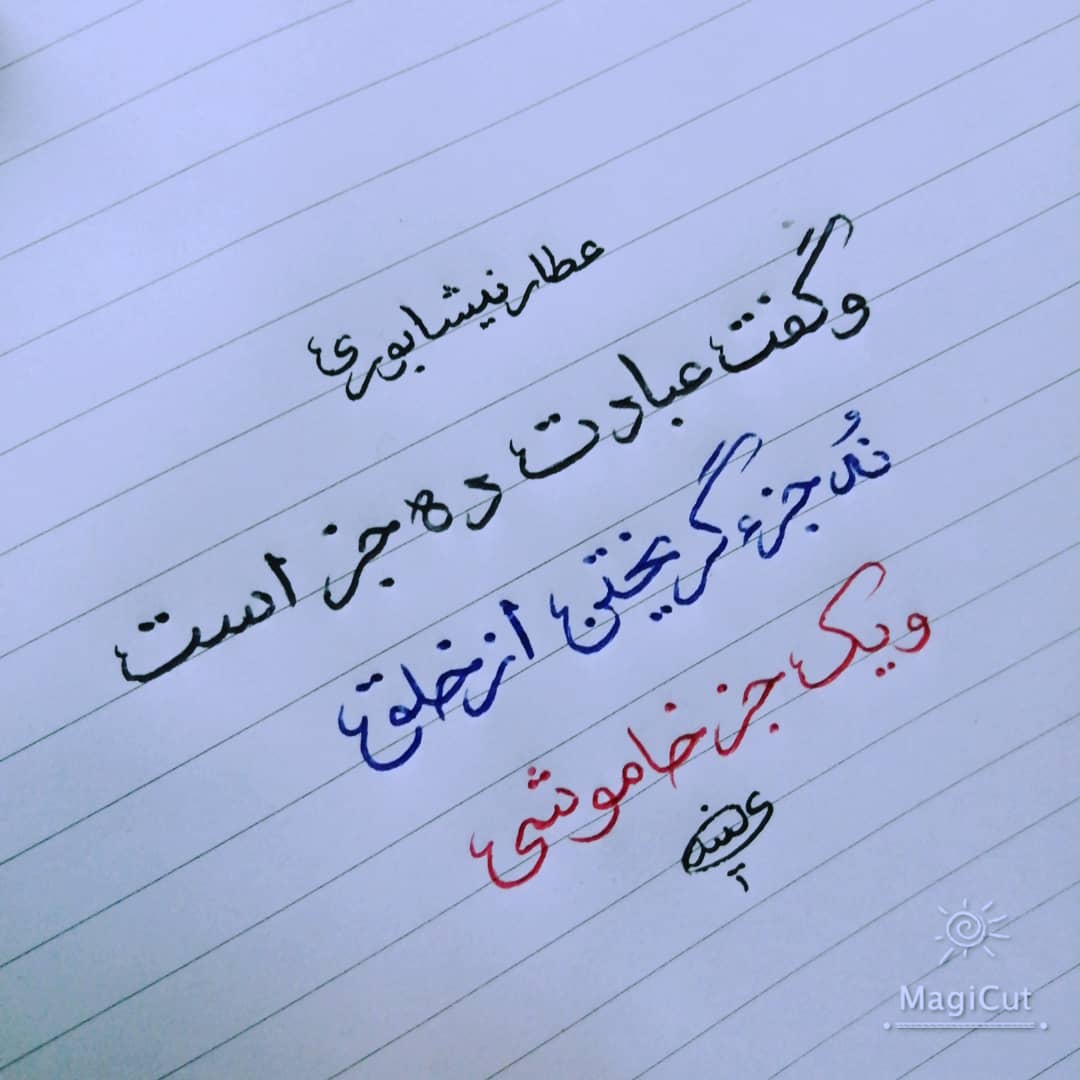 عطار نیشابوری
و گفت عبادت ده جز است
نُه جزء گریختن از خلق
و یک جز خاموشی
MagiCut